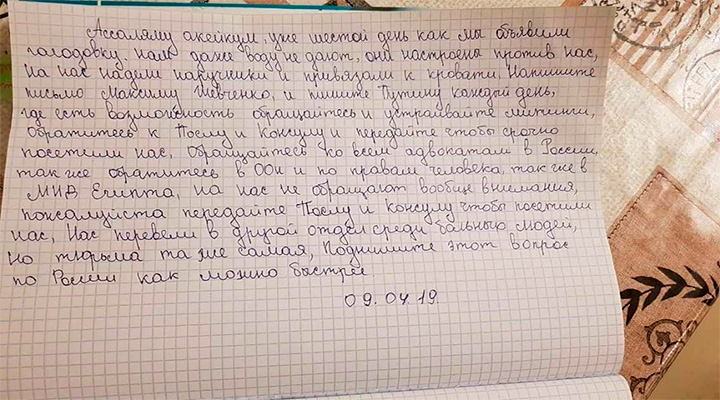 Ассаляму алейкум. уже шестой день как мы объявили
голодовку. нам даже воду не дают, они настроены против нас,
на нас надели наручники и привязали к кровати. Напишите
письмо Максиму Шевченко, и пишите Путину каждый день,
где есть возможность обращайтесь и устраивайте митинги,
Обратитесь к Послу и Консулу и передайте чтобы срочно
посетили нас, Обращайтесь ко всем адвокатам в России,
так же обратитесь в ООН и по правам человека, так же в
МИД Египта, на нас не обращают вообще внимания,
пожалуйста передайте Послу и Консулу чтобы посетили
нас, Нас перевели в другой отдел среди больных людей,
но тюрьма та же самая, Поднимите этот вопрос
по России как можно быстрее
09.04.19.